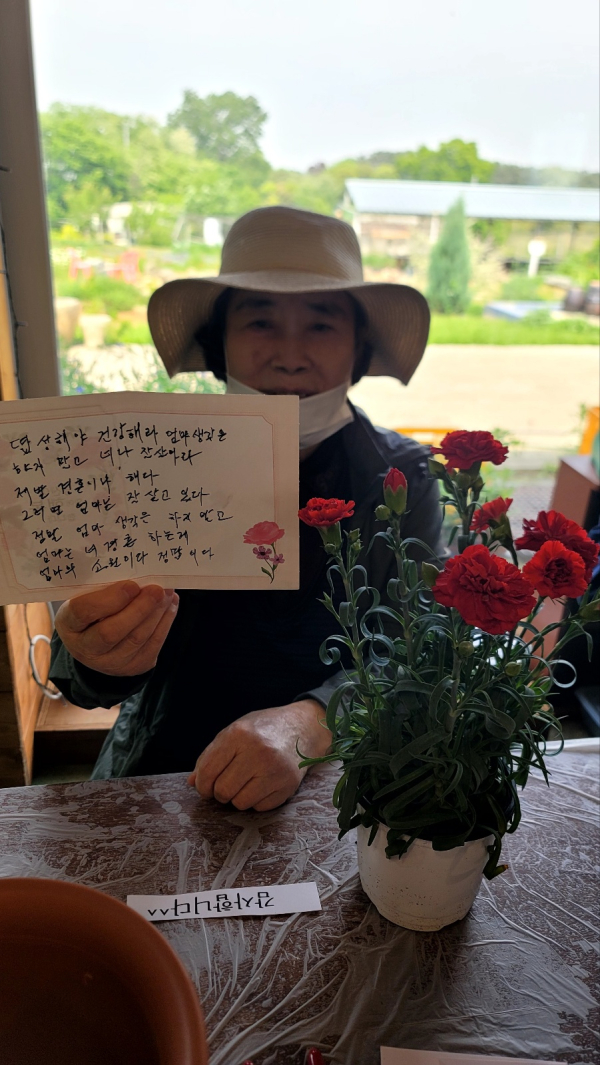 상해야 건강해라 엄마생각은
하지 말고 너나 잘살아라
제발 결혼이나 해다
그래만 엄마는 잘 살고 있다
정말 엄마 생각은 하지 말고
엄마는 너 결혼 하는게
엄마의 소원이다 정말이야
감사합니다^^